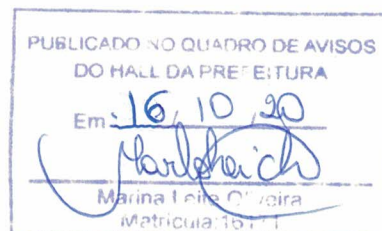 PUBLICADO NO QUADRO DE AVISOS
DO HALL DA PREFEITURA
Em: 16, 10, 20
Marina Leite Oliveira
Matrícula: